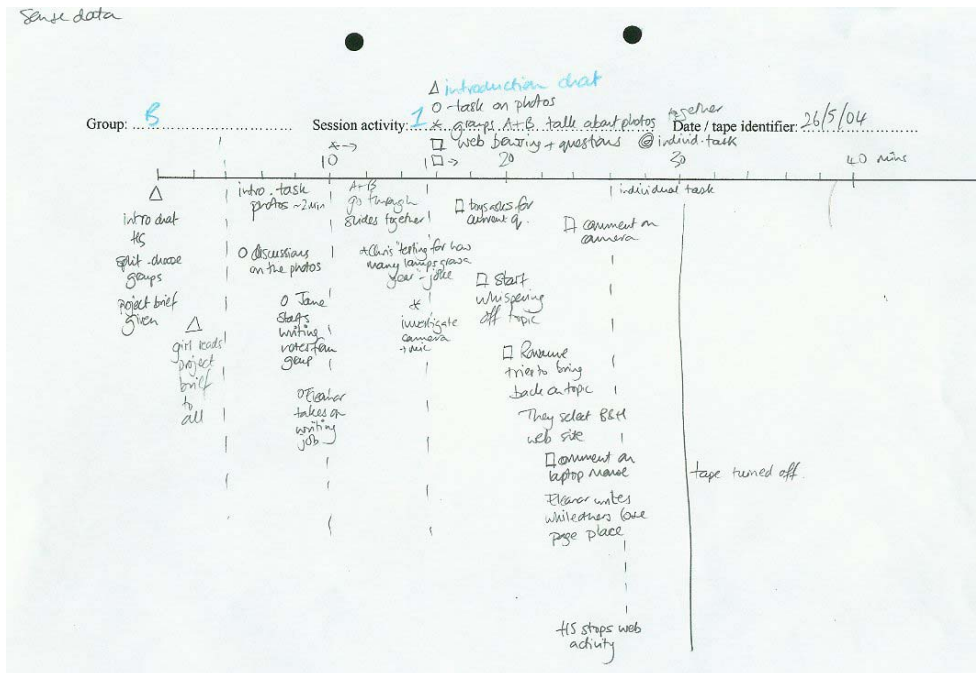 Sense data
△ introduction chat
O - task on photos
* groups A+B talk about photos together
□ web browsing + questions @ individ. task
Group: B
Session activity: 1
Date / tape identifier: 26/5/04
*→
10
□→
20
30
40 mins
△
intro chat
HS
split-choose
groups
project brief
given
△
girl reads
project
brief
to
all
intro. task
photos ~2min
O discussions
on the photos
O Jane
starts
writing
notes for
group
O Eleanor
takes on
writing
job
A+B
go through
slides together
* Chris 'testing' for how
many lamps
year - joke
*
investigate
camera
+ mic
□ boys asks for
current q.
□ Start
whispering
off topic
□
tries to bring
back on topic
They select B&H
web site
□ comment on
laptop mouse
Eleanor writes
while others lose
page place
HS stops web
activity
individual task
□ comment on
camera
tape turned off.